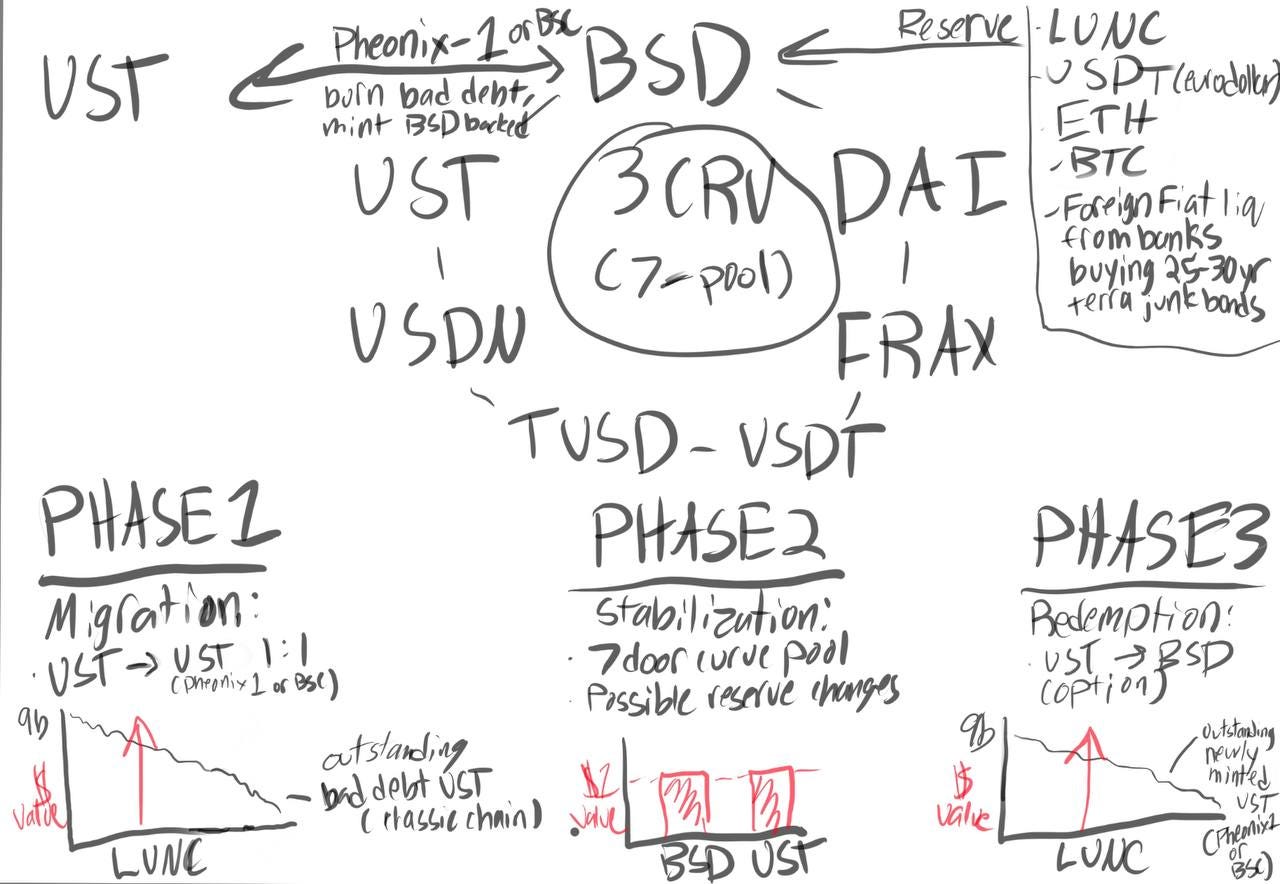 UST
Pheonix-1 or BSC
burn bad debt,
mint BSD backed
BSD
Reserve
- LUNC
- USDT (eurodollar)
- ETH
- BTC
- Foreign Fiat liq
from banks
buying 25-30yr
terra junk bonds
UST
3CRV
(7-pool)
DAI
USDN
FRAX
TUSD - USDT
PHASE 1
Migration:
· UST → UST 1:1
(Pheonix1 or BSC)
9b
$
value
LUNC
outstanding
bad debt UST
(classic chain)
PHASE 2
Stabilization:
· 7door curve pool
· Possible reserve changes
$1
value
BSD UST
PHASE 3
Redemption:
· UST → BSD
(option)
9b
$
value
LUNC
outstanding
newly
minted
UST
(Pheonix1
or
BSC)